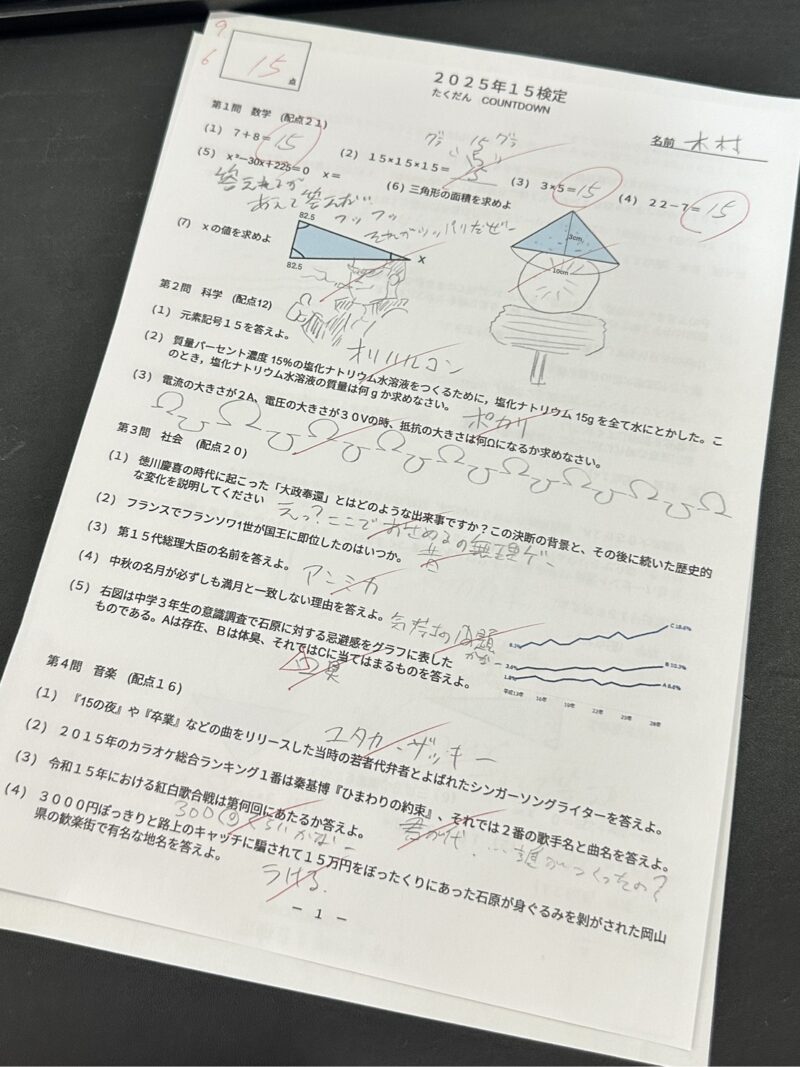 15点
2025年15検定
たくだん COUNTDOWN
名前 木村
第1問 数学 (配点21)
(1) 7+8=15
(2) 15×15×15=
グラ 15 グラ
15
15
(3) 3×5=15
(4) 22−7=15
(5) x²−30x+225=0 x=
(6) 三角形の面積を求めよ
3cm
10cm
(7) xの値を求めよ
82.5
82.5
x
フッフッ
それがツッパリだぜー
第2問 科学 (配点12)
(1) 元素記号15を答えよ。
オリハルコン
(2) 質量パーセント濃度15%の塩化ナトリウム水溶液をつくるために，塩化ナトリウム15gを全て水にとかした。こ
のとき，塩化ナトリウム水溶液の質量は何gか求めなさい。
ポカリ
(3) 電流の大きさが2A、電圧の大きさが30Vの時、抵抗の大きさは何Ωになるか求めなさい。
第3問 社会 (配点20)
(1) 徳川慶喜の時代に起こった「大政奉還」とはどのような出来事ですか？この決断の背景と、その後に続いた歴史的
な変化を説明してください
えっ？ここでおさめるの無理ゲー
(2) フランスでフランソワ1世が国王に即位したのはいつか。
昔
(3) 第15代総理大臣の名前を答えよ。
アンミカ
(4) 中秋の名月が必ずしも満月と一致しない理由を答えよ。
気持ちの問題
かなー
(5) 右図は中学3年生の意識調査で石原に対する忌避感をグラフに表した
ものである。Aは存在、Bは体臭、それではCに当てはまるものを答えよ。
口臭
C 18.6%
B 10.3%
平成13年 16年 19年 22年 25年 28年
第4問 音楽 (配点16)
(1) 『15の夜』や『卒業』などの曲をリリースした当時の若者代弁者とよばれたシンガーソングライターを答えよ。
ユタカ・ザッキー
(2) 2015年のカラオケ総合ランキング1番は秦基博『ひまわりの約束』、それでは2番の歌手名と曲名を答えよ。
君が代 …誰がつくったの？
(3) 令和15年における紅白歌合戦は第何回にあたるか答えよ。
300回くらいかなー
(4) 3000円ぽっきりと路上のキャッチに騙されて15万円をぼったくりにあった石原が身ぐるみを剥がされた岡山
県の歓楽街で有名な地名を答えよ。
うける。
− 1 −